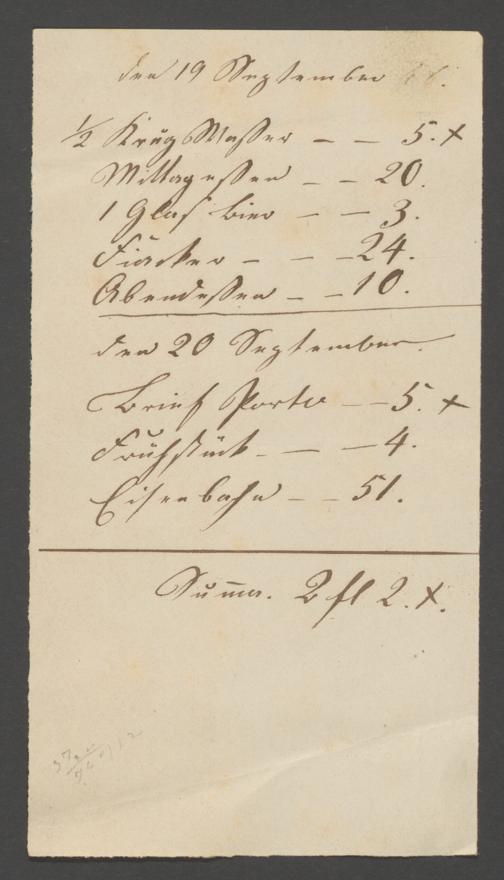 den 19 September
1/2 Krug Wasser – – 5. x
Mittagessen – – 20.
1 Glas bier – – 3.
Fiacker – – – 24.
Abendessen – – 10.
den 20 September.
Brief Porto – – 5. x
Frühstück – – – 4.
Eisenbahn – – 51.
Summa. 2 fl 2. x.